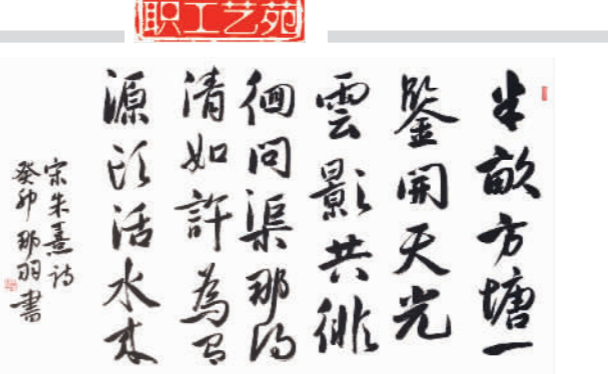 职工艺苑
半畝方塘一
鑒開天光
雲影共徘
徊問渠那得
清如許為有
源頭活水來
宋朱熹诗
癸卯那羽書